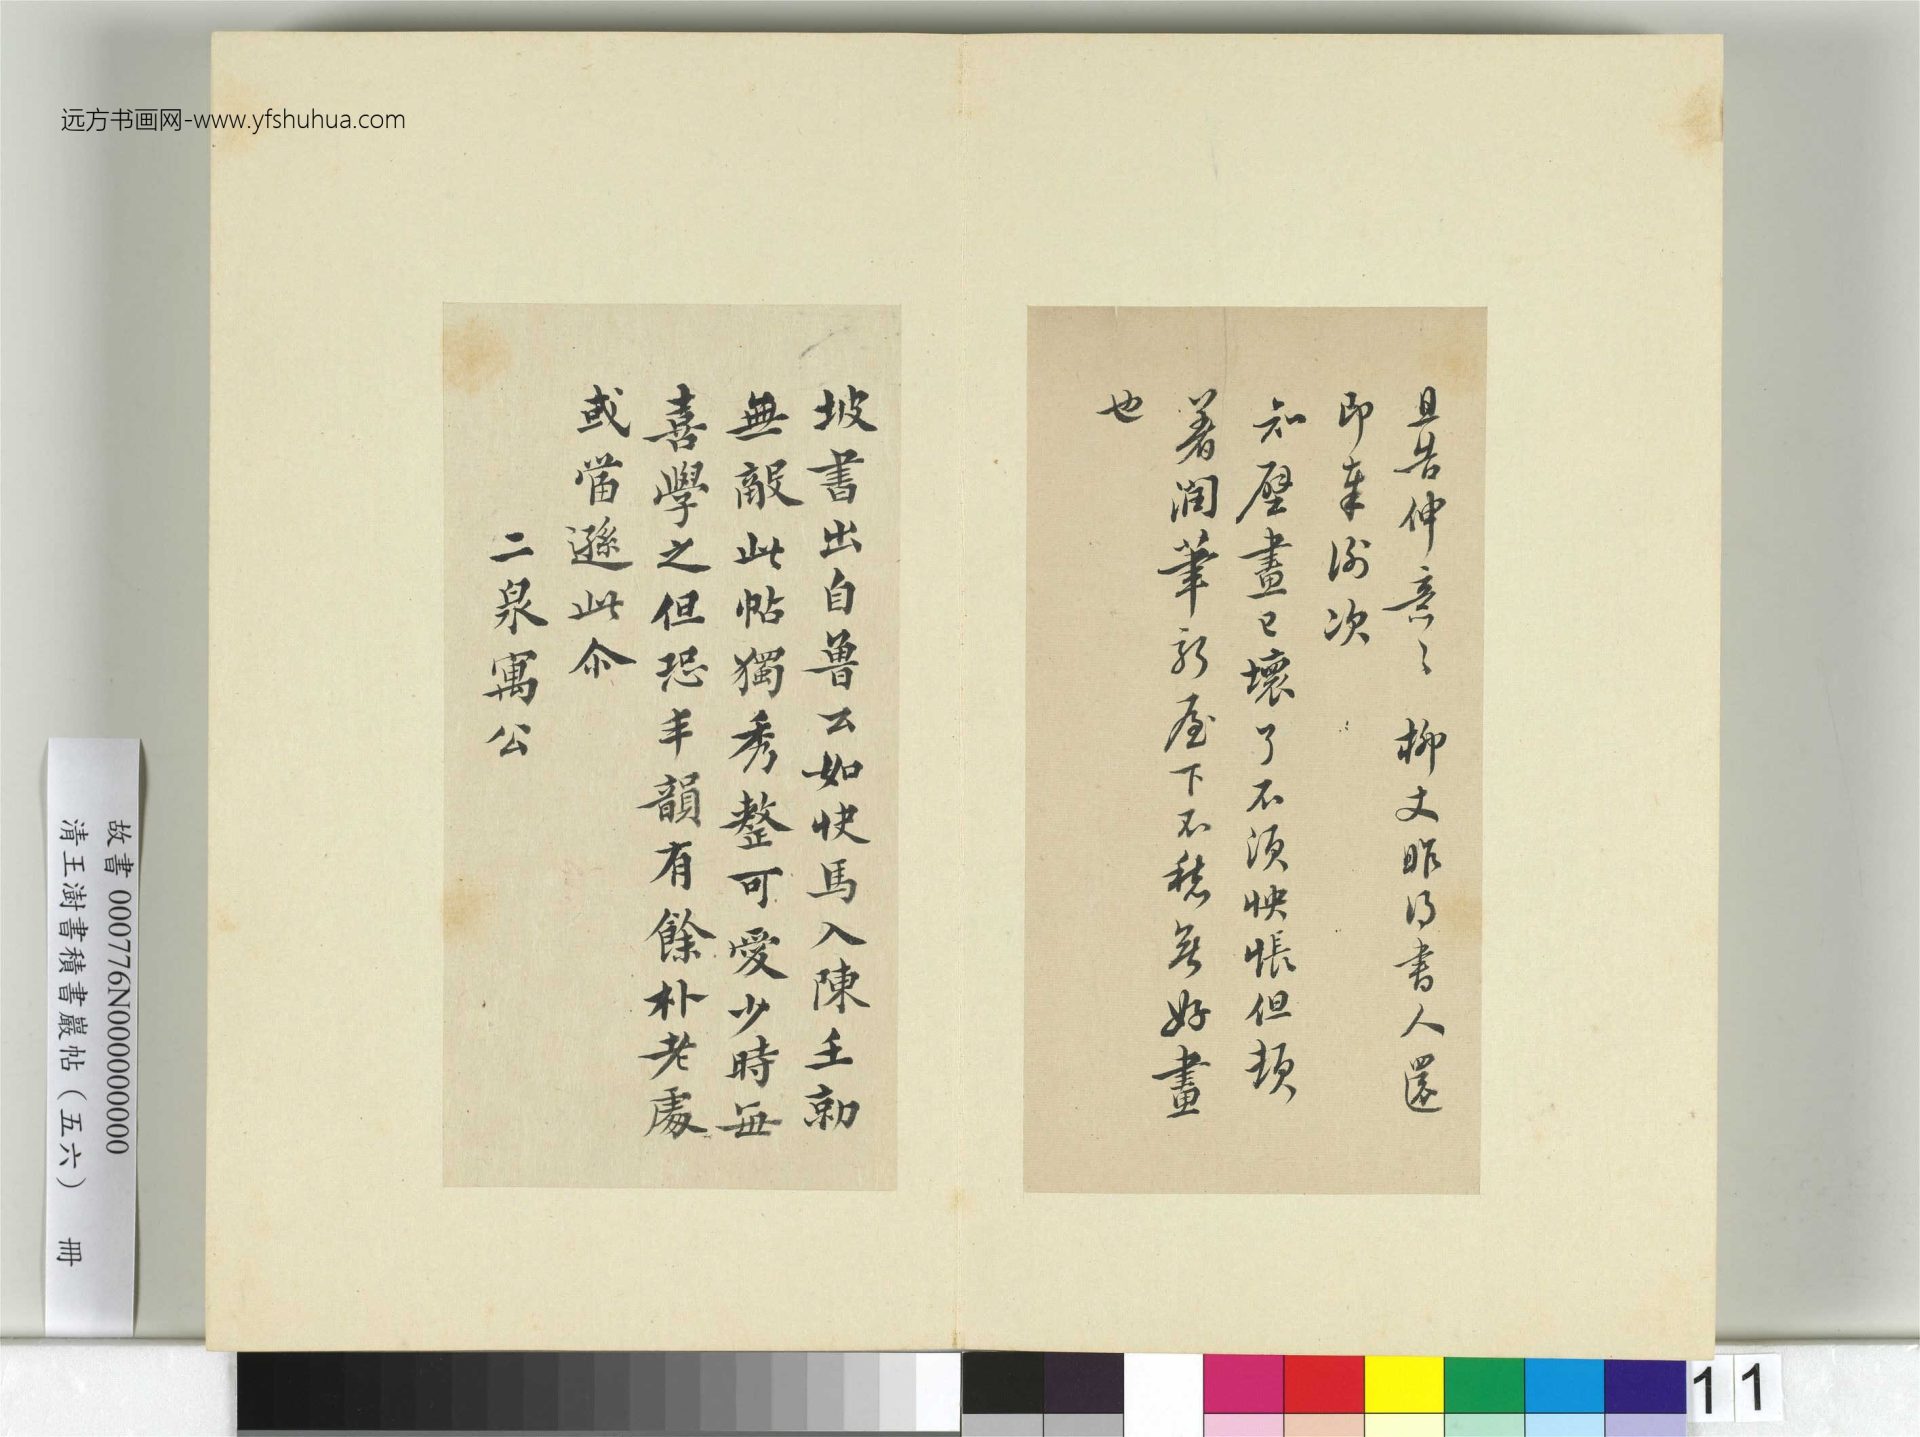 远方书画网-www.yfshuhua.com
且告伸意〻柳丈昨得書人還
即奉謝次
知壁畫已壞了不須怏悵但頓
著潤筆新屋下不愁無好畫
也
坡書出自魯公如快馬入陳王勍
無敵此帖獨秀整可愛少時無
喜學之但恐丰韻有餘朴老處
或當遜此尒
二泉寓公
故書 000776N000000000
清王澍書積書巖帖(五六) 冊
11